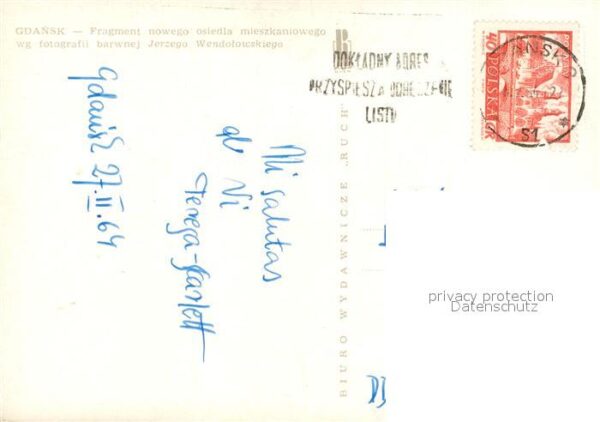 GDAŃSK — Fragment nowego osiedla mieszkaniowego
wg fotografii barwnej Jerzego Wendołowskiego
DOKŁADNY ADRES
PRZYSPIESZA DORĘCZENIE
LISTU
40
POLSKA
S1
Gdańsk 27.II.64
Mi salutas
al Vi
BIURO WYDAWNICZE „RUCH"
privacy protection
Datenschutz